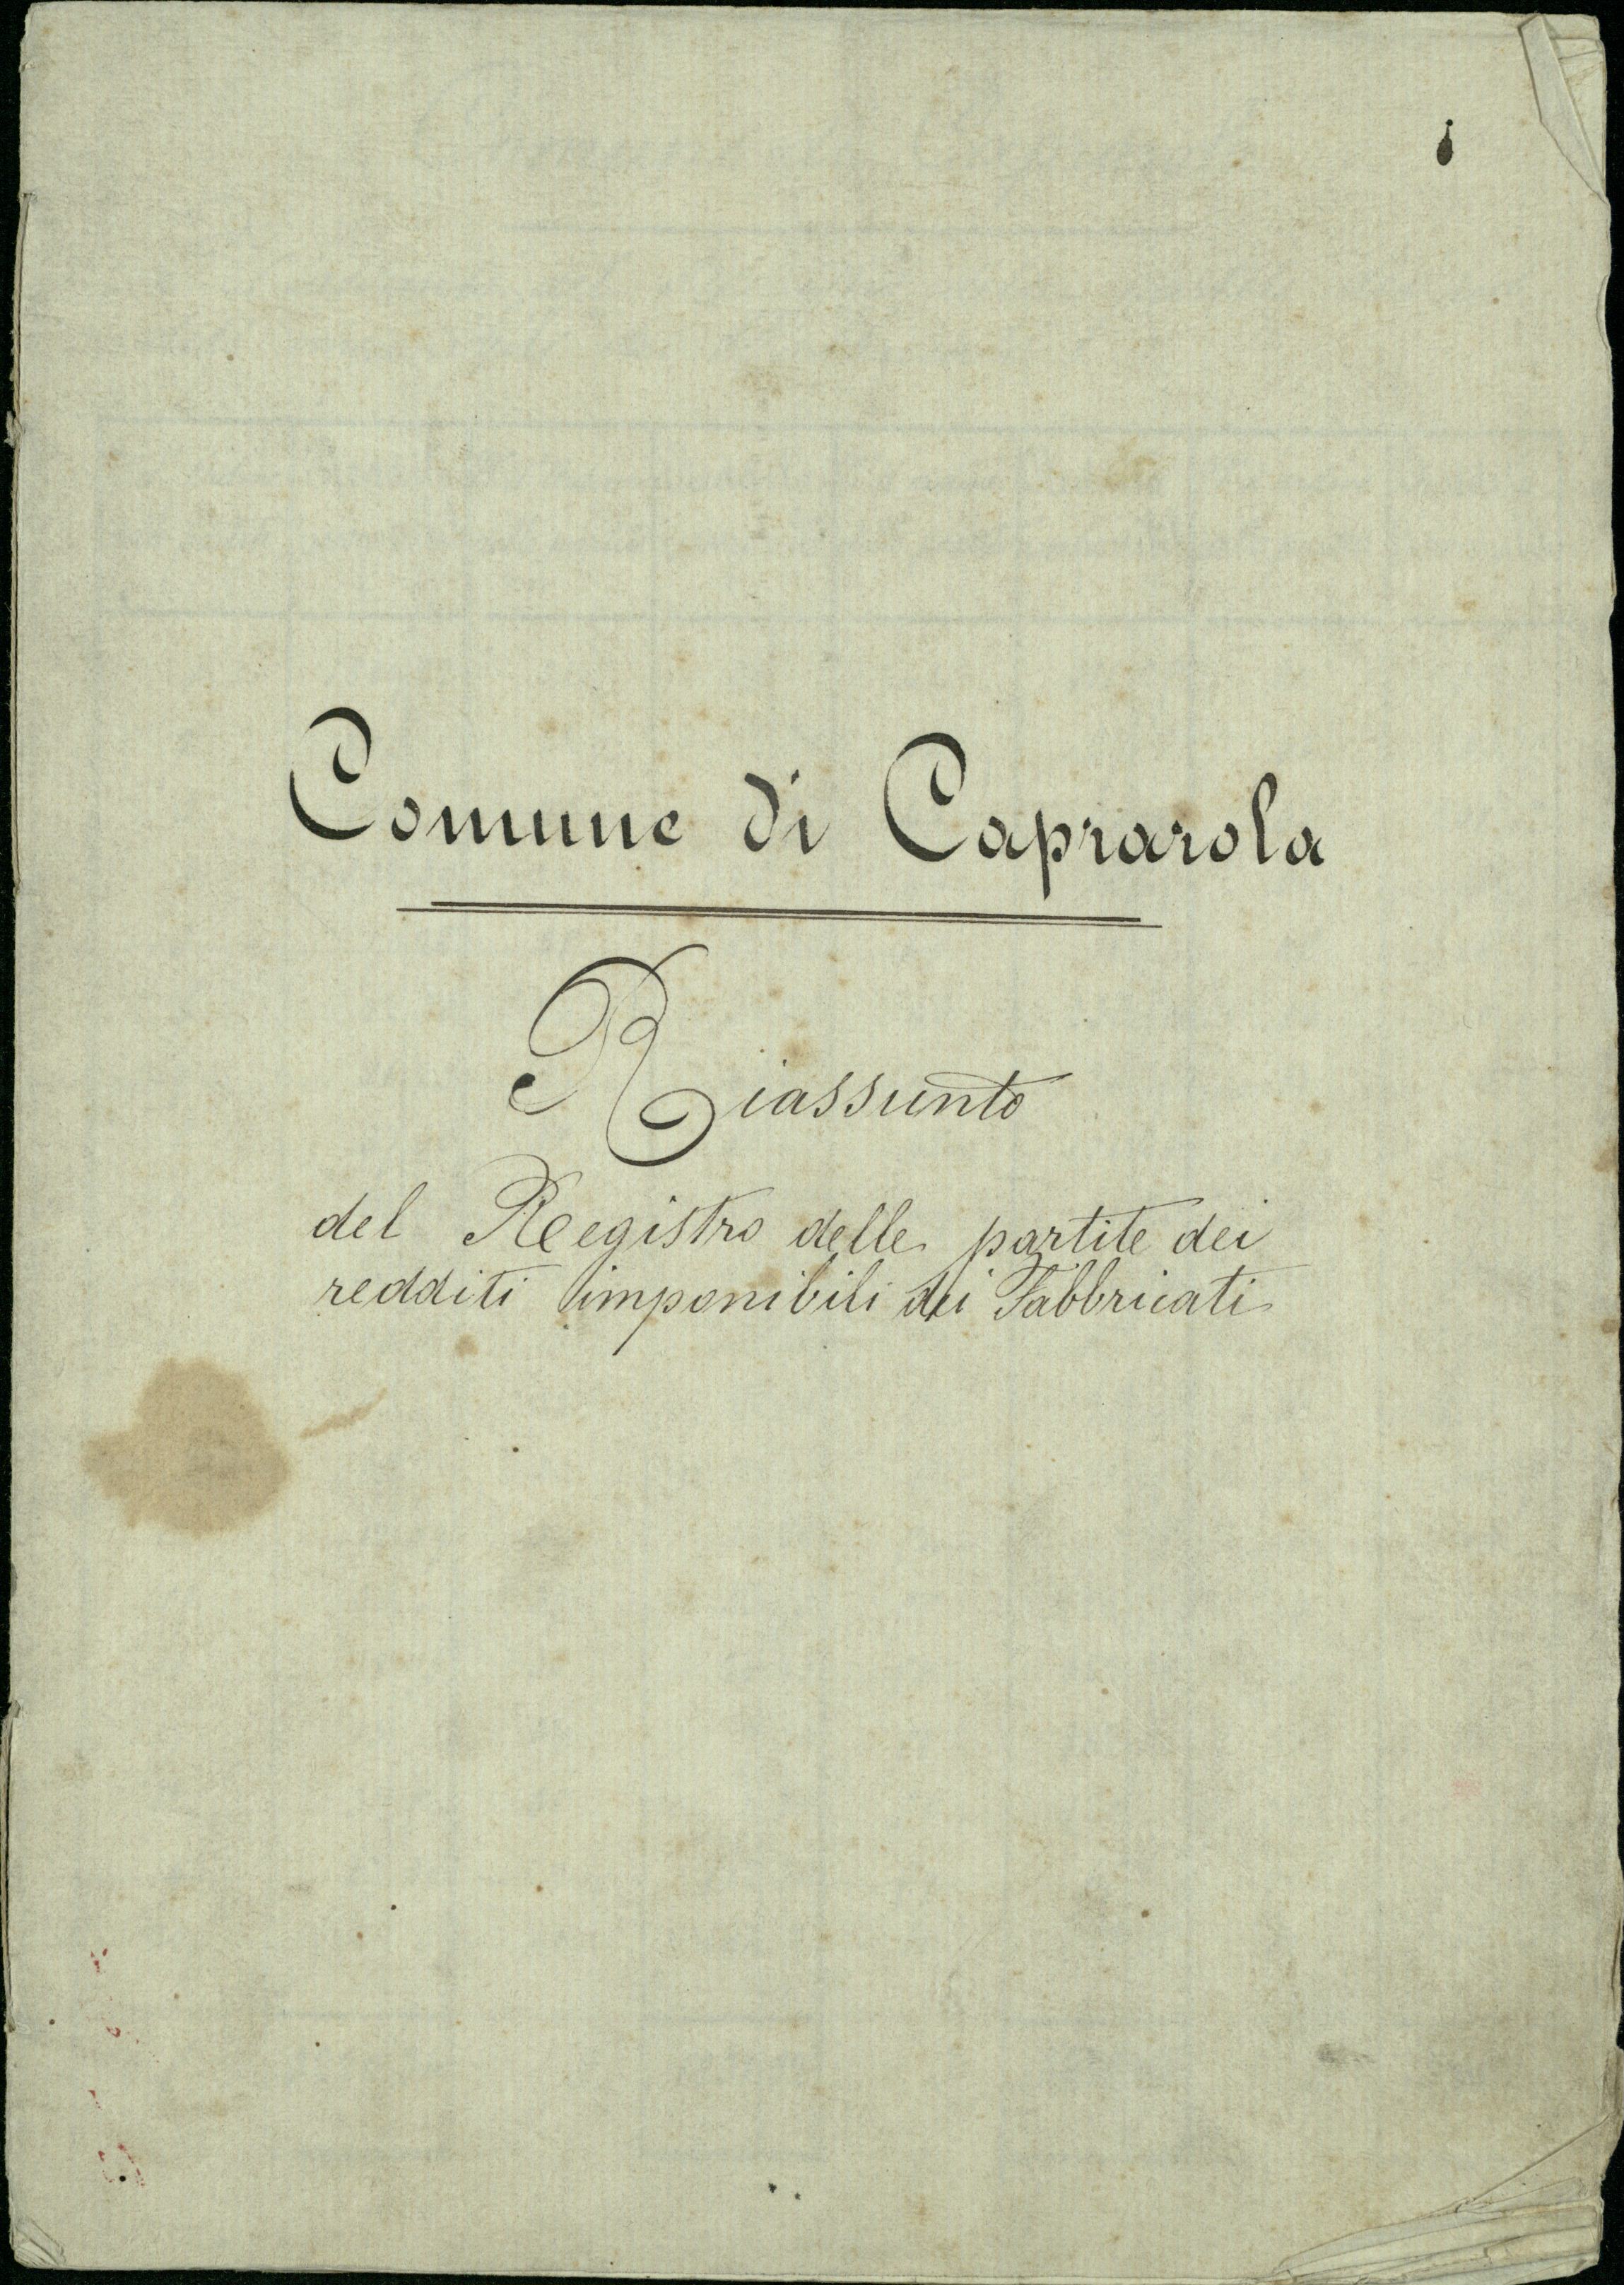 Comune di Caprarola
Riassunto
del Registro delle partite dei
redditi imponibili dei Fabbricati